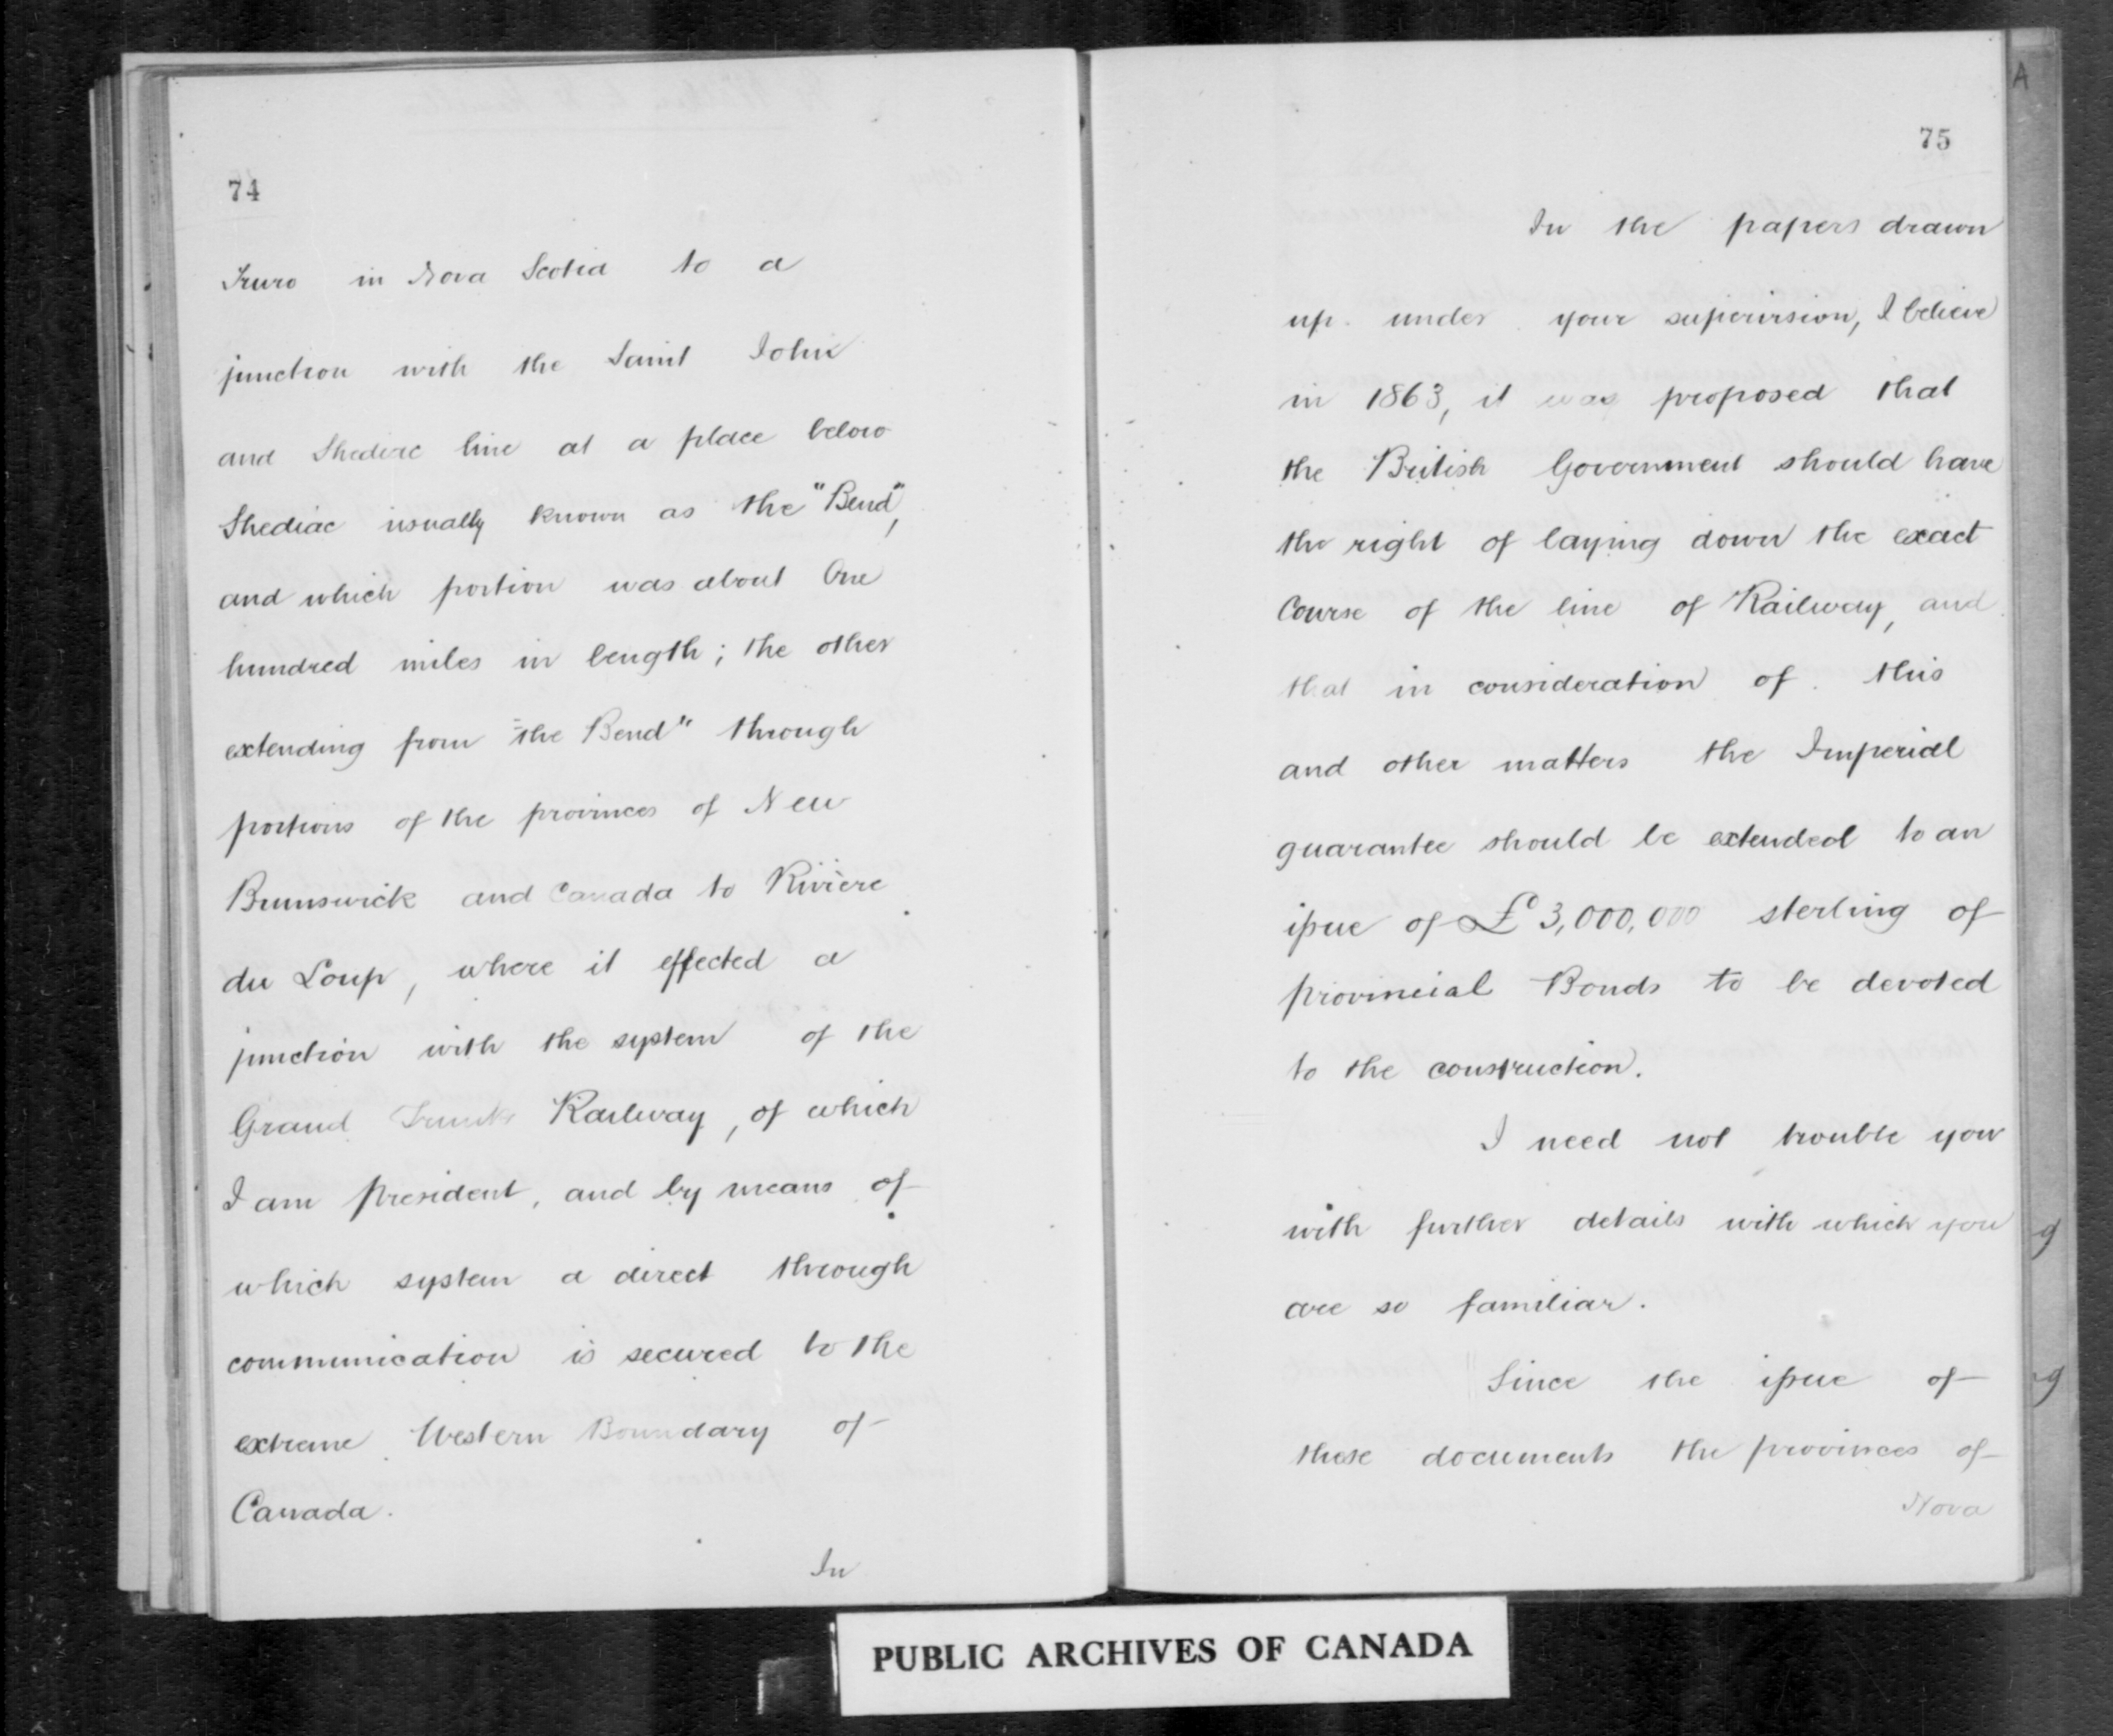 74
Truro in Nova Scotia to a
junction with the Saint John
and Shediac line at a place below
Shediac usually known as the "Bend",
and which portion was about One
hundred miles in length; the other
extending from "the Bend" through
portions of the provinces of New
Brunswick and Canada to Rivière
du Loup, where it effected a
junction with the system of the
Grand Trunk Railway, of which
I am President, and by means of
which system a direct through
communication is secured to the
extreme Western Boundary of
Canada.
In
75
In the papers drawn
up under your supervision, I believe
in 1863, it was proposed that
the British Government should have
the right of laying down the exact
Course of the line of Railway, and
that in consideration of this
and other matters the Imperial
guarantee should be extended to an
issue of £3,000,000 sterling of
provincial Bonds to be devoted
to the construction.
I need not trouble you
with further details with which you
are so familiar.
Since the issue of
these documents the provinces of
Nova
A
g
g
PUBLIC ARCHIVES OF CANADA